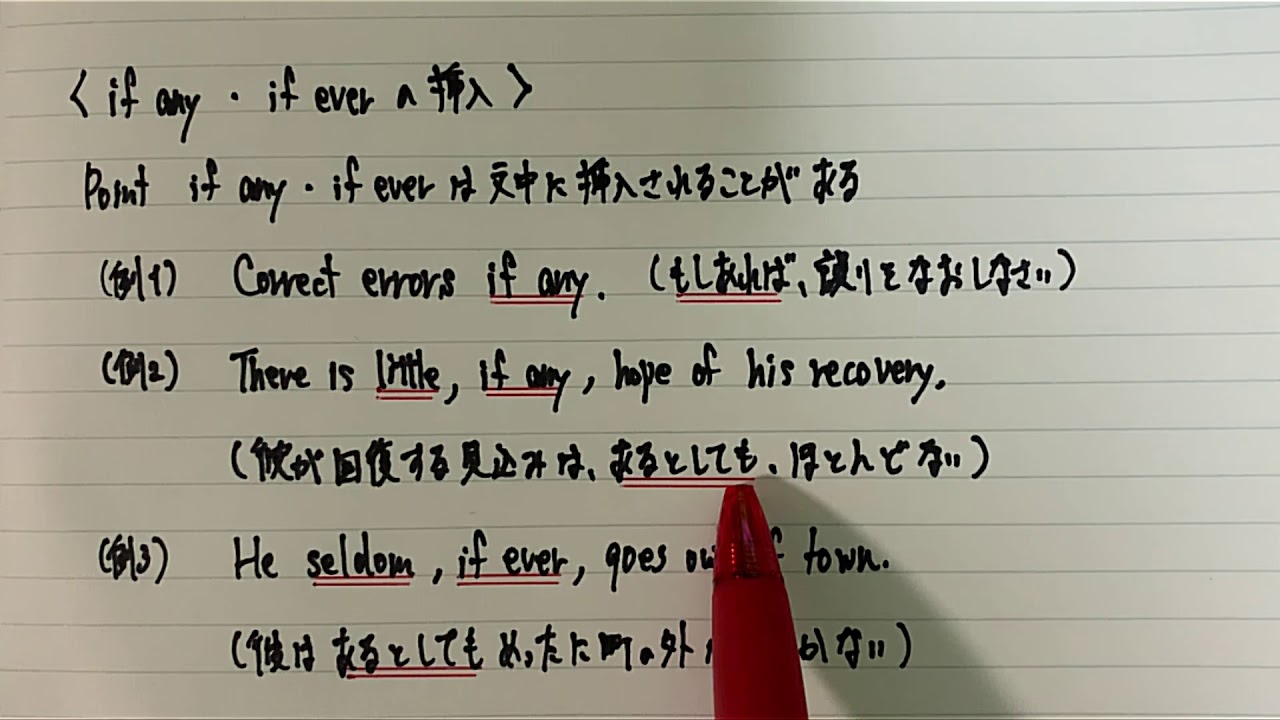 〈 if any ・ if ever の挿入 〉
Point if any ・ if ever は文中に挿入されることがある
(例1) Correct errors if any. (もしあれば、誤りをなおしなさい)
(例2) There is little, if any, hope of his recovery.
(彼が回復する見込みは、あるとしても、ほとんどない)
(例3) He seldom, if ever, goes town.
(彼はあるとしてもめったに町の外 かない)